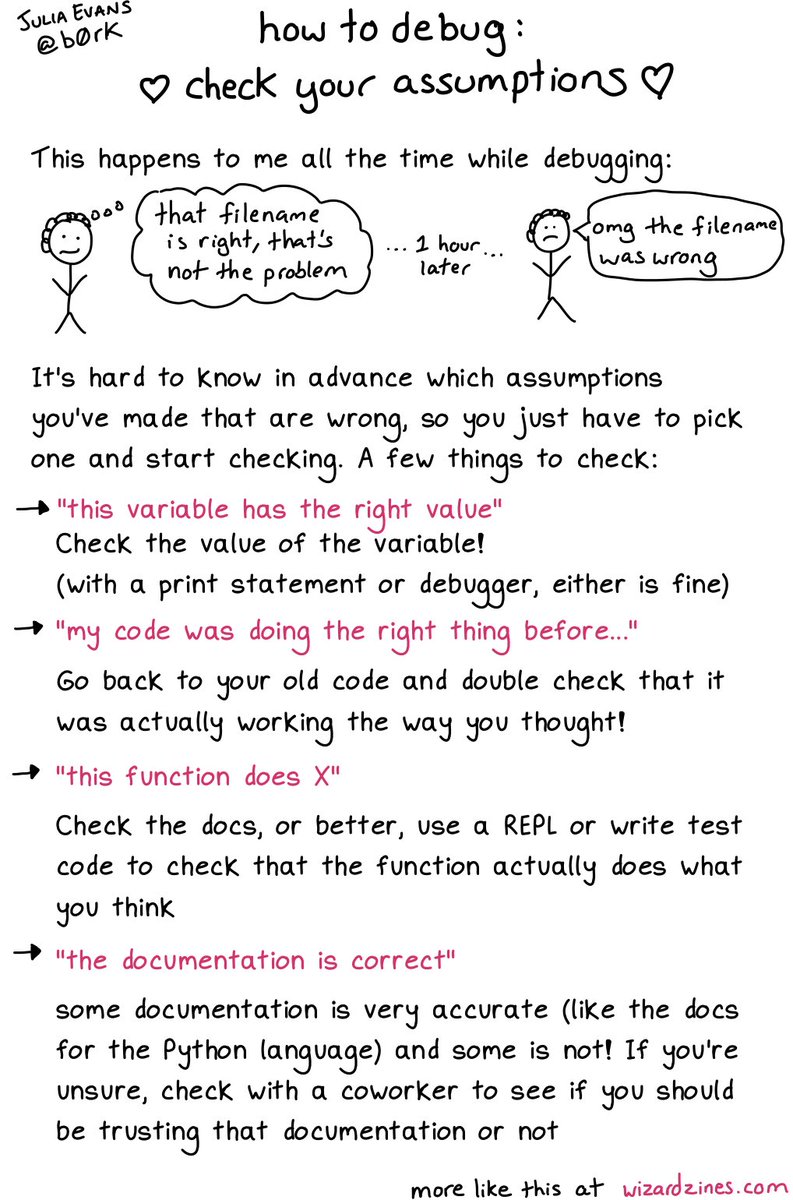 JULIA EVANS
@b0rk
how to debug:
♡ check your assumptions ♡
This happens to me all the time while debugging:
that filename
is right, that's
not the problem
... 1 hour...
later
omg the filename
was wrong
It's hard to know in advance which assumptions
you've made that are wrong, so you just have to pick
one and start checking. A few things to check:
→ "this variable has the right value"
Check the value of the variable!
(with a print statement or debugger, either is fine)
→ "my code was doing the right thing before..."
Go back to your old code and double check that it
was actually working the way you thought!
→ "this function does X"
Check the docs, or better, use a REPL or write test
code to check that the function actually does what
you think
→ "the documentation is correct"
some documentation is very accurate (like the docs
for the Python language) and some is not! If you're
unsure, check with a coworker to see if you should
be trusting that documentation or not
more like this at wizardzines.com